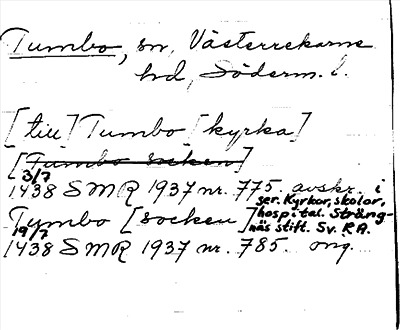 Tumbo, sn, Västerrekarne
hd, Söderm. l.
[till] Tumbo [kyrka]
[Tumbo socken]
3/7
1438 SMR 1937 nr. 775. avskr. i
ser. Kyrkor, skolor,
hospital. Sträng-
näs stift. Sv. RA.
Tymbo [socken]
19/7
1438 SMR 1937 nr. 785. orig.